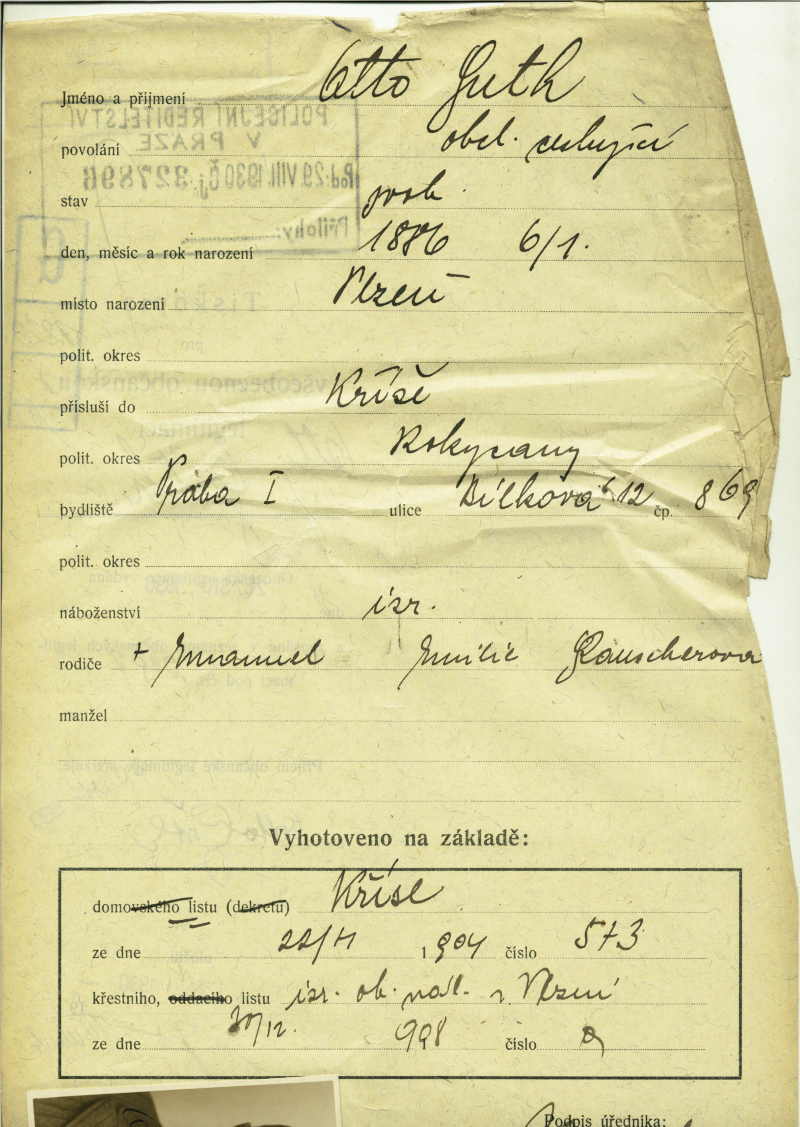 Jméno a příjmení Otto Guth
povolání obch. cestující
stav svob.
den, měsíc a rok narození 1886 6/1.
místo narození Plzeň
polit. okres
přísluší do Kříše
polit. okres Rokycany
bydliště Praha I ulice Bílkova 12 čp. 869
polit. okres
náboženství izr.
rodiče + Emanuel Emilie Rauscherova
manžel
Vyhotoveno na základě:
domovského listu (dekretu) Kříše
ze dne 1904 číslo 573
křestního, oddacího listu izr. ob. nál. v Plzni
ze dne 30/12. 908 číslo
Podpis úředníka:
POLICEJNÍ ŘEDITELSTVÍ
V PRAZE
Pod. 29.VIII.1930 Č.j. 32789
Přílohy:
Tisko
pro
všeobecnou občanskou
legitimaci